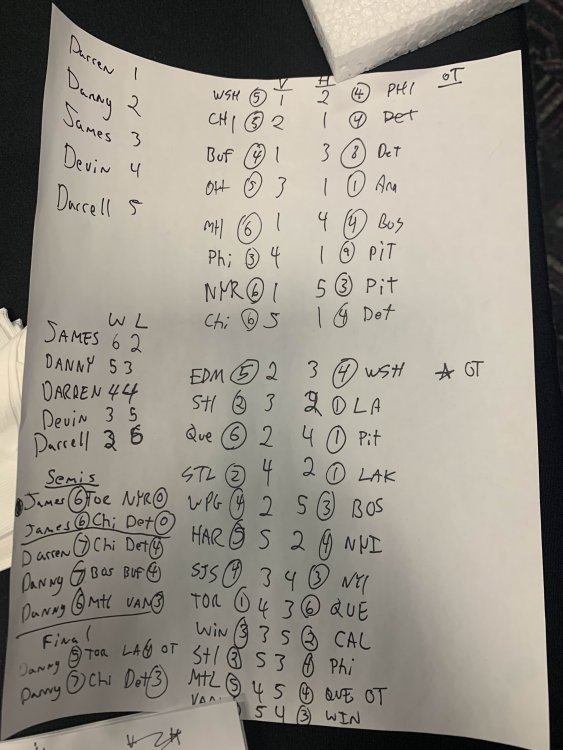 Darren 1
Danny 2
James 3
Devin 4
Darrell 5
V H OT
WSH 5 1 2 4 PHI
CHI 5 2 1 4 Det
Buf 4 1 3 8 Det
Ott 5 3 1 1 Ana
Mtl 6 1 4 4 Bos
Phi 3 4 1 9 PiT
NYR 6 1 5 3 Pit
Chi 6 5 1 4 Det
EDM 5 2 3 4 WSH ☆ OT
Stl 2 3 2 1 LA
Que 6 2 4 1 Pit
STL 2 4 2 1 LAK
WPG 4 2 5 3 BOS
HAR 5 5 2 4 NYI
SJS 4 3 4 3 NYI
TOR 1 4 3 6 QUE
WIN 3 3 5 2 CAL
Stl 3 5 3 4 Phi
MtL 5 4 5 4 QUE OT
VAN 5 4 3 WIN
W L
JAMES 6 2
DANNY 5 3
DARREN 4 4
Devin 3 5
Darrell 2 6
Semis
James 6 Tor NYR 0
James 6 Chi Det 0
Darren 7 Chi Det 4
Danny 7 Bos Buf 4
Danny 6 Mtl VAN 3
Final
Danny 5 TOR LA 4 OT
Danny 7 Chi Det 3